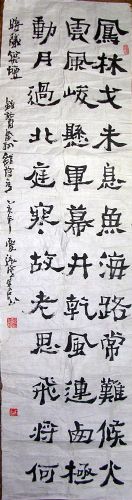 鳳林戈未息魚海路常難候火
雲風峻懸軍幕井乾風連西極
動月過北庭寒故老思飛將何
時議築壇